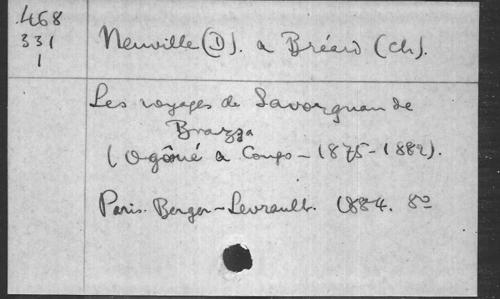 468
331
1
Neuville (D). a Bréard (Ch).
Les voyages de Savorgnan de
Brazza
(Ogôoué a Congo - 1875-1882).
Paris. Berger-Levrault. 1884. 8º